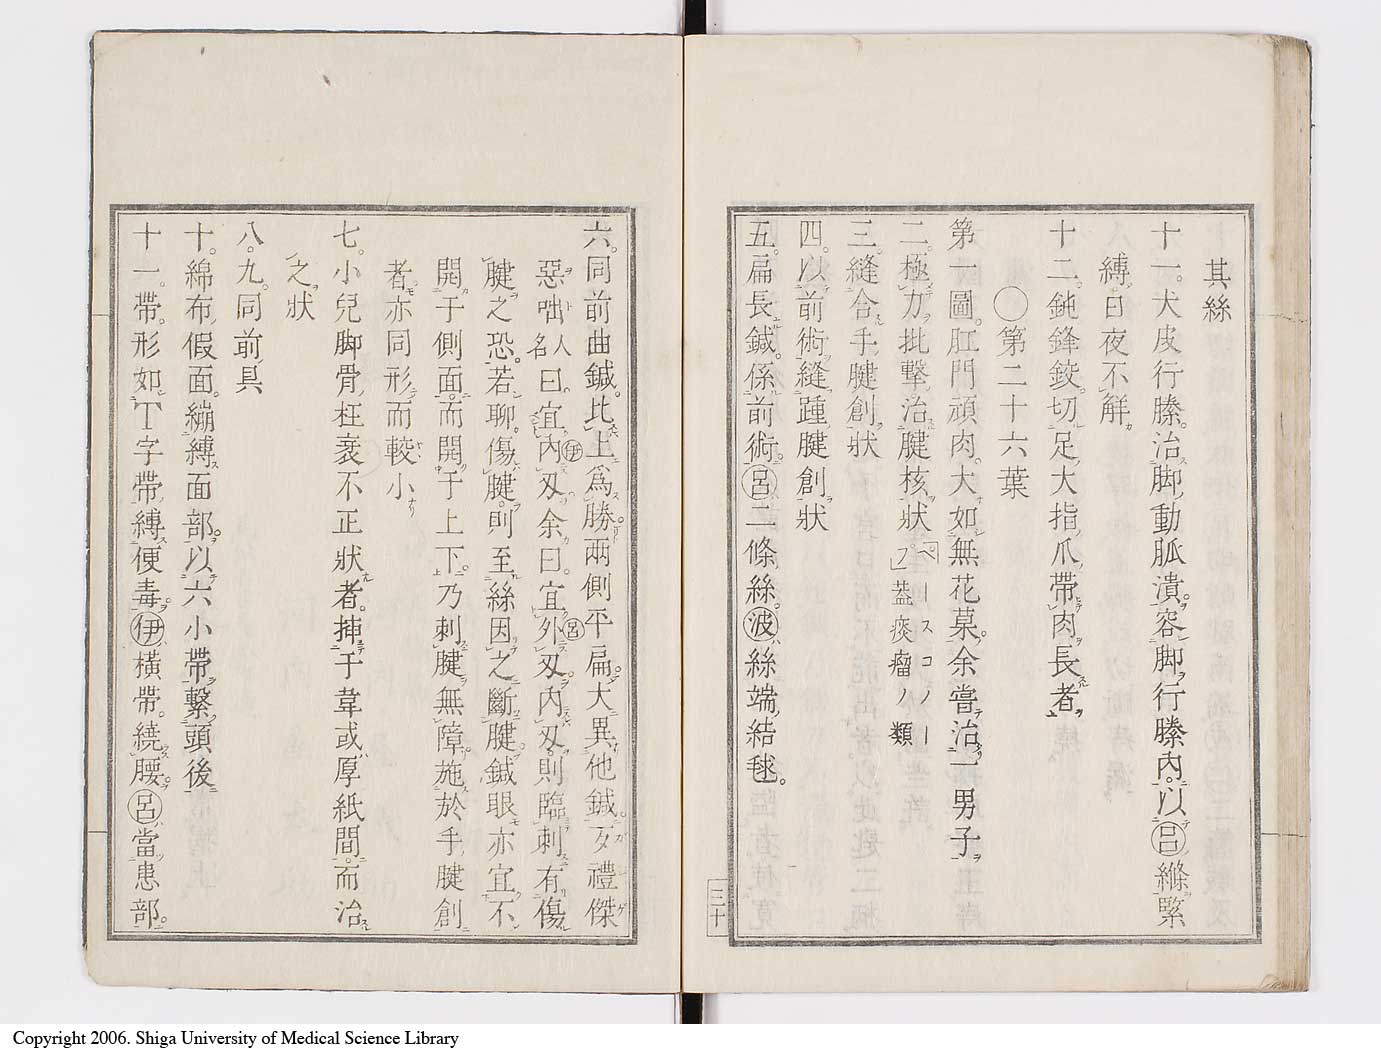 其絲
十一。犬皮行縢。治脚動脈潰。容脚行縢内。以㊀呂縧緊
縛。日夜不觧
十二。鈍鋒鉸。切足大指爪帶肉長者
〇第二十六葉
第一圖。肛門頑肉。大如無花菓。余嘗治一男子
二。極力批撃。治腱核状「ペースコノープ」。蓋痰瘤ノ類
三。縫合手腱創状
四。以前術縫踵腱創状
五。扁長鍼。係前術。呂二條絲。波絲端結毬。
三十
六。同前曲鍼。比上爲勝。兩側平扁。大異他鍼。歹禮傑
惡咄人名曰。宜内伊刄。余曰。宜外呂刄。内刄則臨刺有傷
腱之恐。若聊傷腱。則至絲因之斷腱。鍼眼亦宜不
開于側面。而開于上下。乃刺腱無障。施於手腱創
者。亦同形而較小
七。小兒脚骨枉衺不正状者。挿于韋或厚紙間。而治
之状
八。九。同前具
十。綿布假面。繃縛面部。以六小帶繋頭後
十一。帶。形如丅字帶。縛便毒。伊横帶。繞腰。呂當患部。
Copyright 2006. Shiga University of Medical Science Library